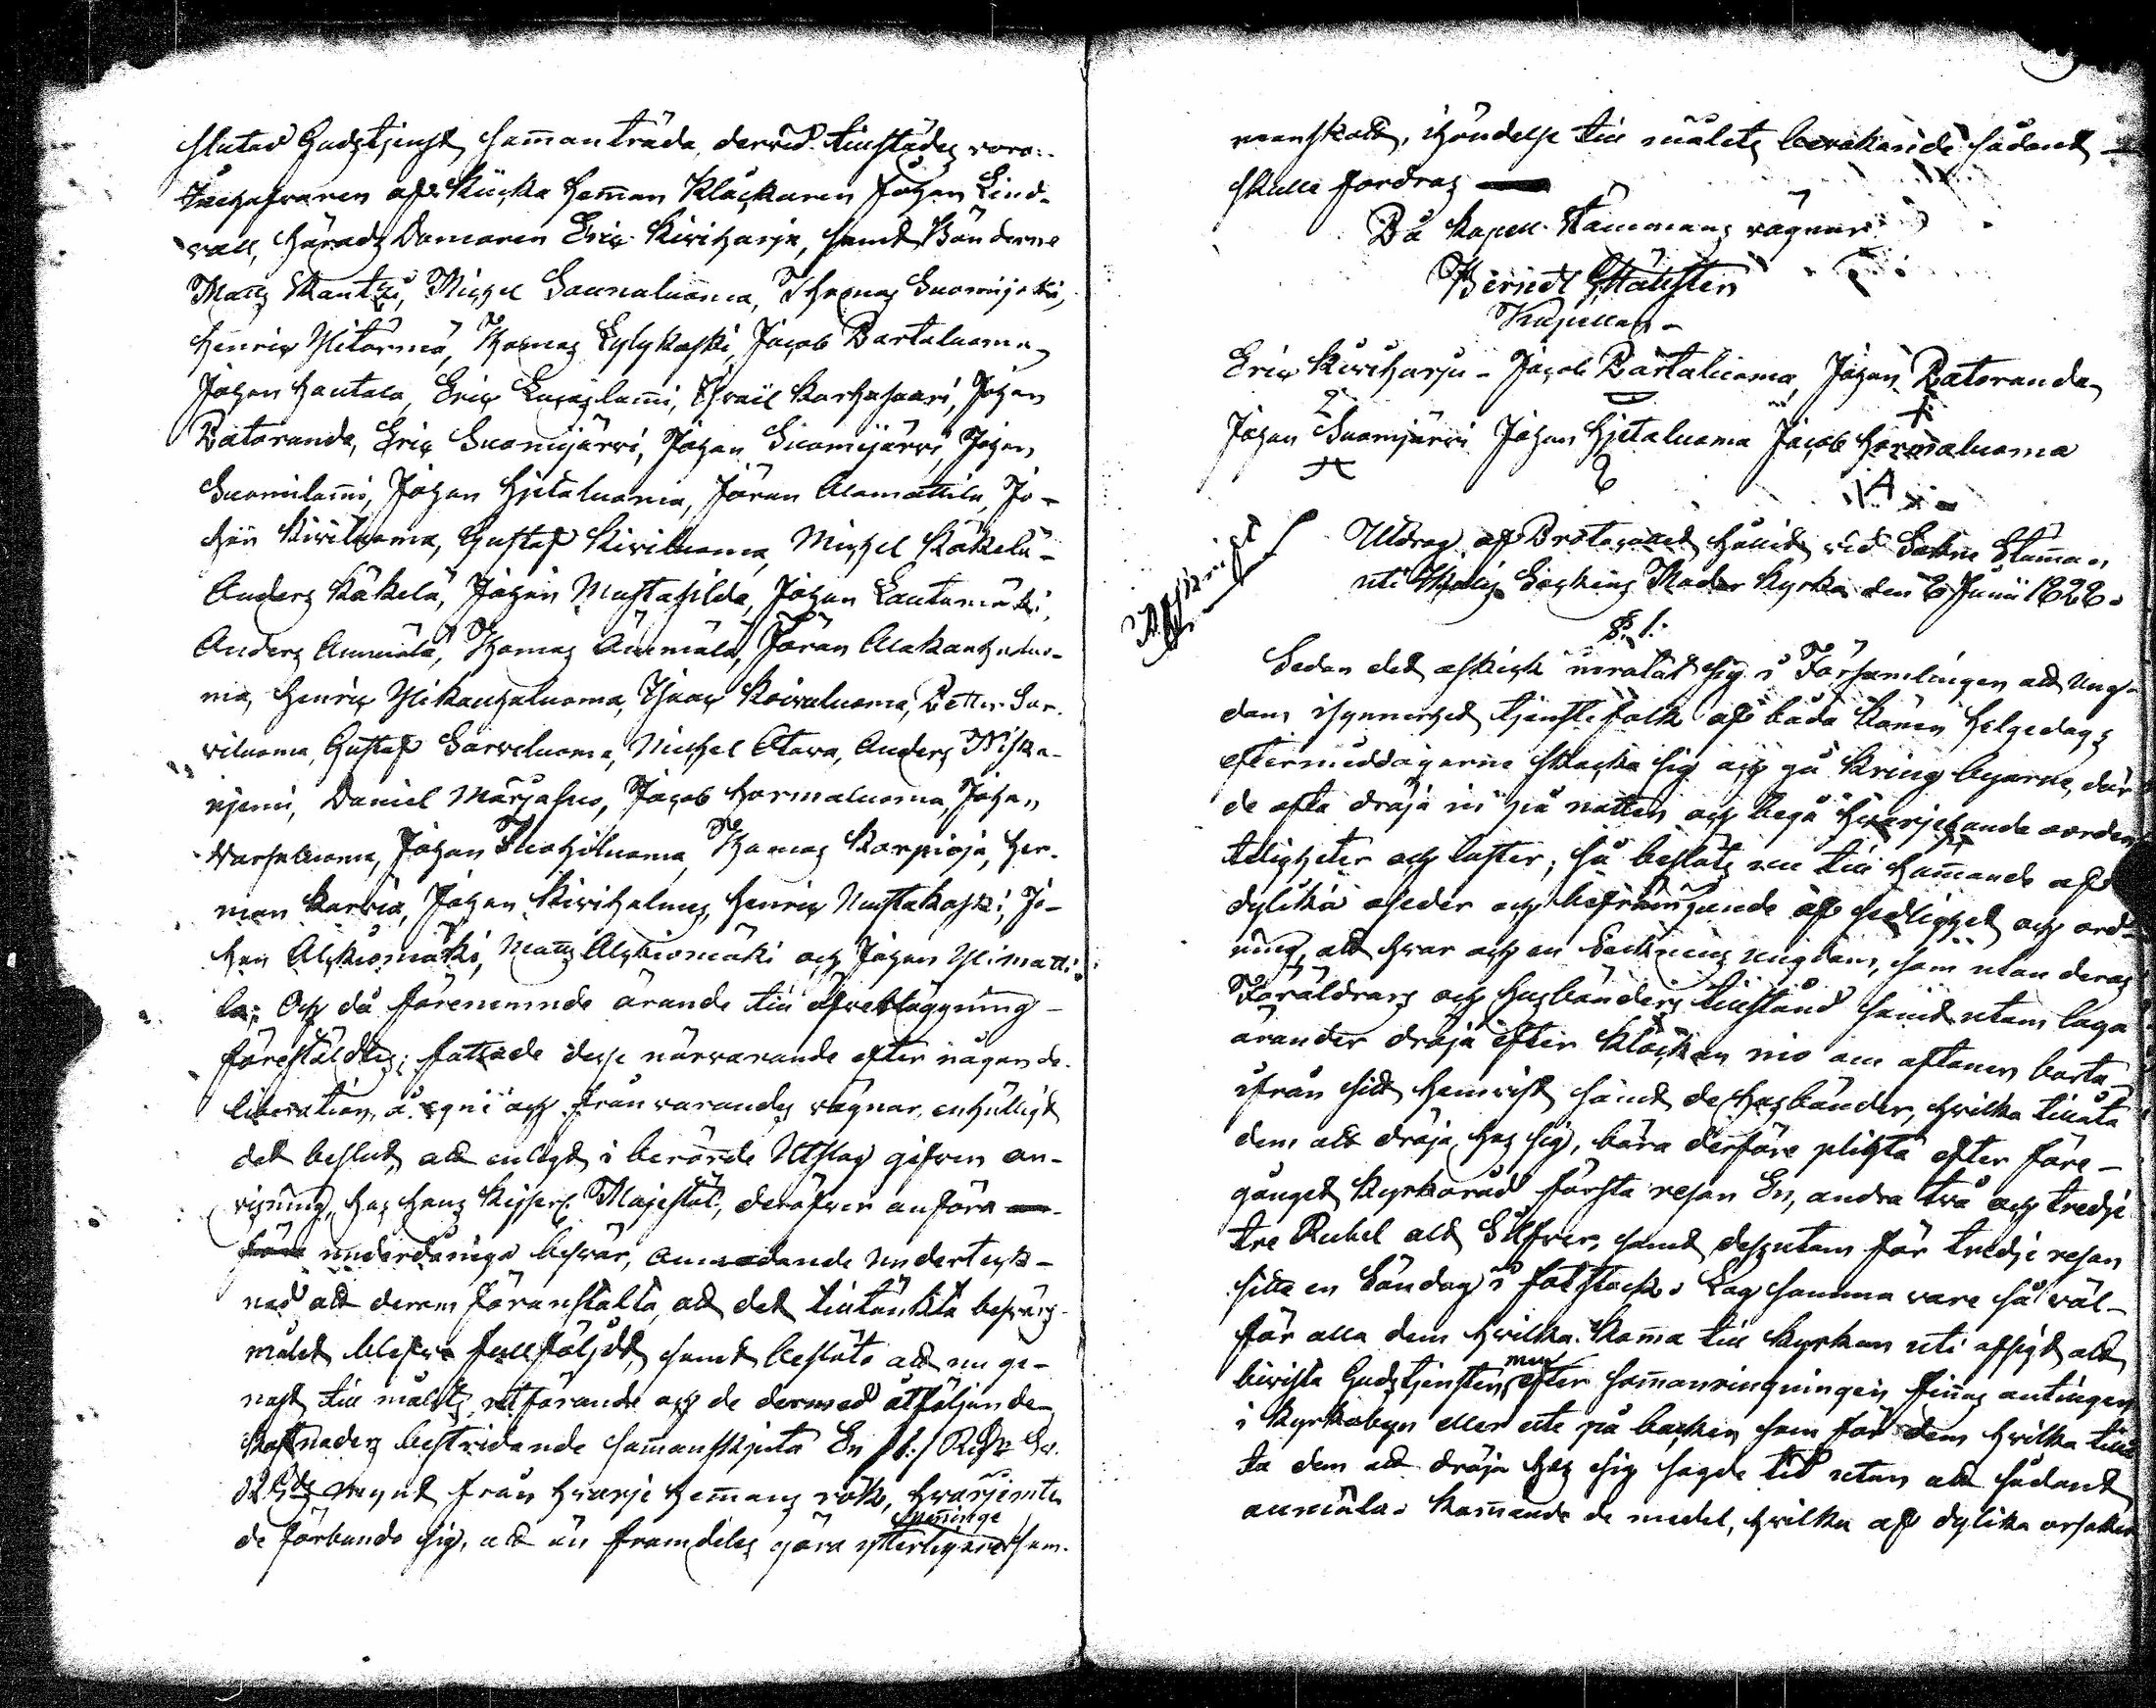 slutad Gudstjenst sammanträda, dervid tillstädes voro:
Innehafvaren af Kiicka Hemman Klockaren Johan Lind-
wall, Härads Domaren Eric Kiviharju, samt Bönderne
Matts Mantyi, Michel Saunaluoma, Thomas Suomijoki,
Henric Ylitörmä, Thomas Sylykoski, Jacob Partaluoma,
Johan Hautala, Eric Lusaslammi, Israil Karhusaari, Johan
Potoranda, Eric Suomijärvi, Johan Suomijärvi, Johan
Suomilammi, Johan Hjetaluoma, Jöran Alamattila, Jo-
han Kiviluoma, Gustaf Kiviluoma, Michel Käkelä,
Anders Käkelä, Johan Mustasilda, Johan Lautamäki,
Anders Ämmälä, Thomas Ämmälä, Jöran Alakauhaluo-
ma, Henric Ylikauhaluoma, Isaac Koivuluoma, Petter Sar-
viluoma, Gustaf Sarviluoma, Michel Otava, Anders Niska-
njemi, Daniel Marjasuo, Jacob Harmaluoma, Johan
Varsaluoma, Johan Isohiluoma, Thomas Korpioja, Her-
man Karvia, Johan Kiviholma, Henric Mustakoski, Jo-
han Alkiomäki, Matts Alkiomäki och Johan Ylimatti-
la; Och då förenemnde ärande till öfverläggning
föreställdes; fattade desse närvarande efter någon de-
liberation, å egne och frånvarandes vägnar, enhälligt
det beslut, att enligt i berörde Utslag gifven an-
visning, hos Hans Kejserl. Majestät, deröfver anföra
underdåniga besvär, anmodande underteck-
nad att derom föranstalta, att det tilltänkta besvärs-
målet blefve fullföljdt, samt beslöto att nu ge-
nast till målets utförande och de dermed åtföljande
kostnaders bestridande sammanskjuta En /:1:/ Rubel
mynt från hvarje Hemmans rök, hvarjemte
de förbundo sig, att än framdeles göra ytterligare penninge sam-
manskott, i händelse till målets bevakande sådant
skulle fordras
På Kapell Stämmans vägnar
Berndt Stallsten
Kapellan
Eric Kiviharju Jacob Partaluoma, Johan Potoranda,
Johan Suomijärvi Johan Hjetaluoma Jacob Harmaluoma
Afskrift
Utdrag af Protocollet hållit vid Sokne Stämman
uti Socknens Moder Kyrka den 8 Junii 1828.
§. 1.
Sedan det oskick inrotat sig i Församlingen att Ung-
dom isynnerhet tjenstefolk af båda könen Helgedags
eftermiddagarne skocka sig och gå kring byarne, där
de ofta dröja in på natten och begå hvarjehanda oorden-
teligheter och laster; så beslöts nu till hämmande af
dylika oseder och befrämjande af sedlighet och ord-
ning, att hvar och en Socknens ungdom, som utan deras
Föräldrars och husbönders tillstånd samt utom laga
ärander dröja efter Klockan nio om aftonen borta
ifrån sitt hemvist samt de husbönder, hvilka tillåta
dem att dröja hos sig, böra derföre plikta efter före-
gånget Kyrkoråd första resan En, andra två och tredje
tre Rubel alt Silfver, samt dessutom för tredje resan
sitta en Söndag i fotstock. Lag samma vare så väl
för alla dem hvilka komma till kyrkan uti afsigt att
bivista Gudstjensten men efter sammanringningen finnas antingen
i Kyrkobyn eller ute på backen som för dem hvilka tillå-
ta dem att dröja hos sig sagde tid utan att sådant
anmäla. Kommande de medel, hvilka af dylika orsaker